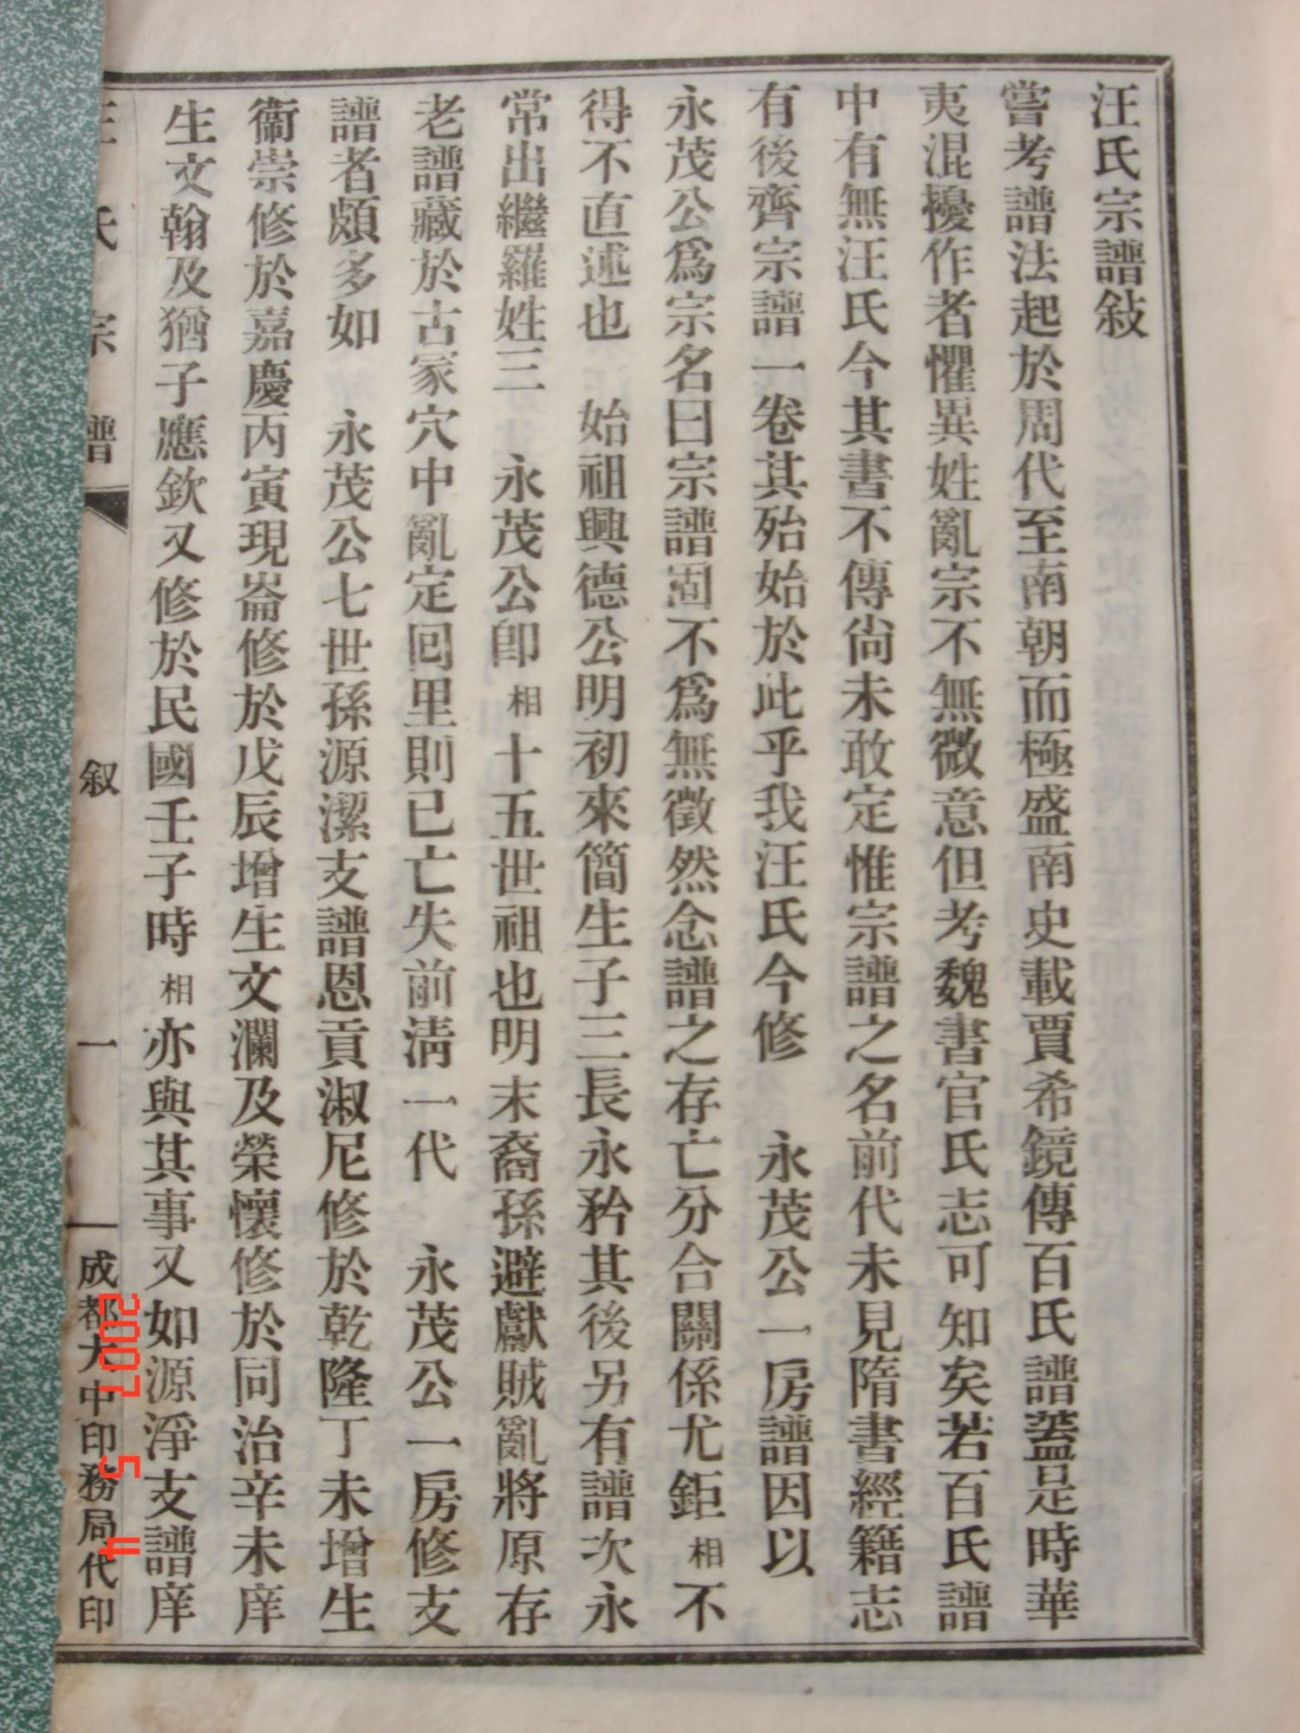 汪氏宗譜敍
嘗考譜法起於周代至南朝而極盛南史載賈希鏡傳百氏譜蓋是時華
夷混擾作者懼異姓亂宗不無微意但考魏書官氏志可知矣若百氏譜
中有無汪氏今其書不傳尙未敢定惟宗譜之名前代未見隋書經籍志
有後齊宗譜一卷其殆始於此乎我汪氏今修　永茂公一房譜因以
永茂公爲宗名曰宗譜固不爲無徵然念譜之存亡分合關係尤鉅相不
得不直述也　始祖興德公明初來簡生子三長永矜其後另有譜次永
常出繼羅姓三　永茂公卽相十五世祖也明末裔孫避獻賊亂將原存
老譜藏於古冢穴中亂定回里則已亡失前淸一代　永茂公一房修支
譜者頗多如　永茂公七世孫源潔支譜恩貢淑尼修於乾隆丁未增生
衞崇修於嘉慶丙寅現崙修於戊辰增生文瀾及榮懷修於同治辛未庠
生文翰及猶子應欽又修於民國壬子時相亦與其事又如源淨支譜庠
氏宗譜　叙　一　成都大中印務局代印
2007 5 4